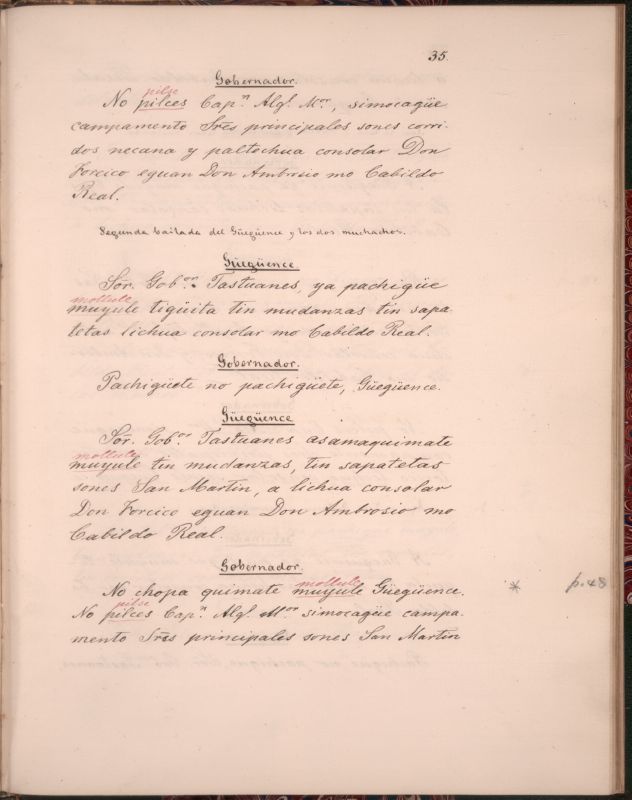 35.
Gobernador.
pilse
No pilces Capⁿ Algˡ Mᵒʳ, simocagüe
campamento Sres principales sones corri-
dos necana y paltechua consolar Don
Forcico eguan Don Ambrosio mo Cabildo
Real.
Segunda bailada del Güegüence y los dos muchachos.
Güegüence
Sór. Gobᵒʳ. Tastuanes, ya pachigüe
mollule
muyule tigüita tin mudanzas tin sapa-
tetas lichua consolar mo Cabildo Real.
Gobernador.
Pachigüete no pachigüete, Güegüence.
Güegüence
Sór. Gobᵒʳ Tastuanes asamaquimate
mollule
muyule tin mudanzas, tin sapatetas
sones San Martin, a lichua consolar
Don Forcico eguan Don Ambrosio mo
Cabildo Real.
Gobernador.
mollule
No chopa quimate muyule Güegüence. * p. 48
pilse
No pilces Capⁿ Algˡ Mᵒʳ simocagüe campa-
mento Sres principales sones San Martin